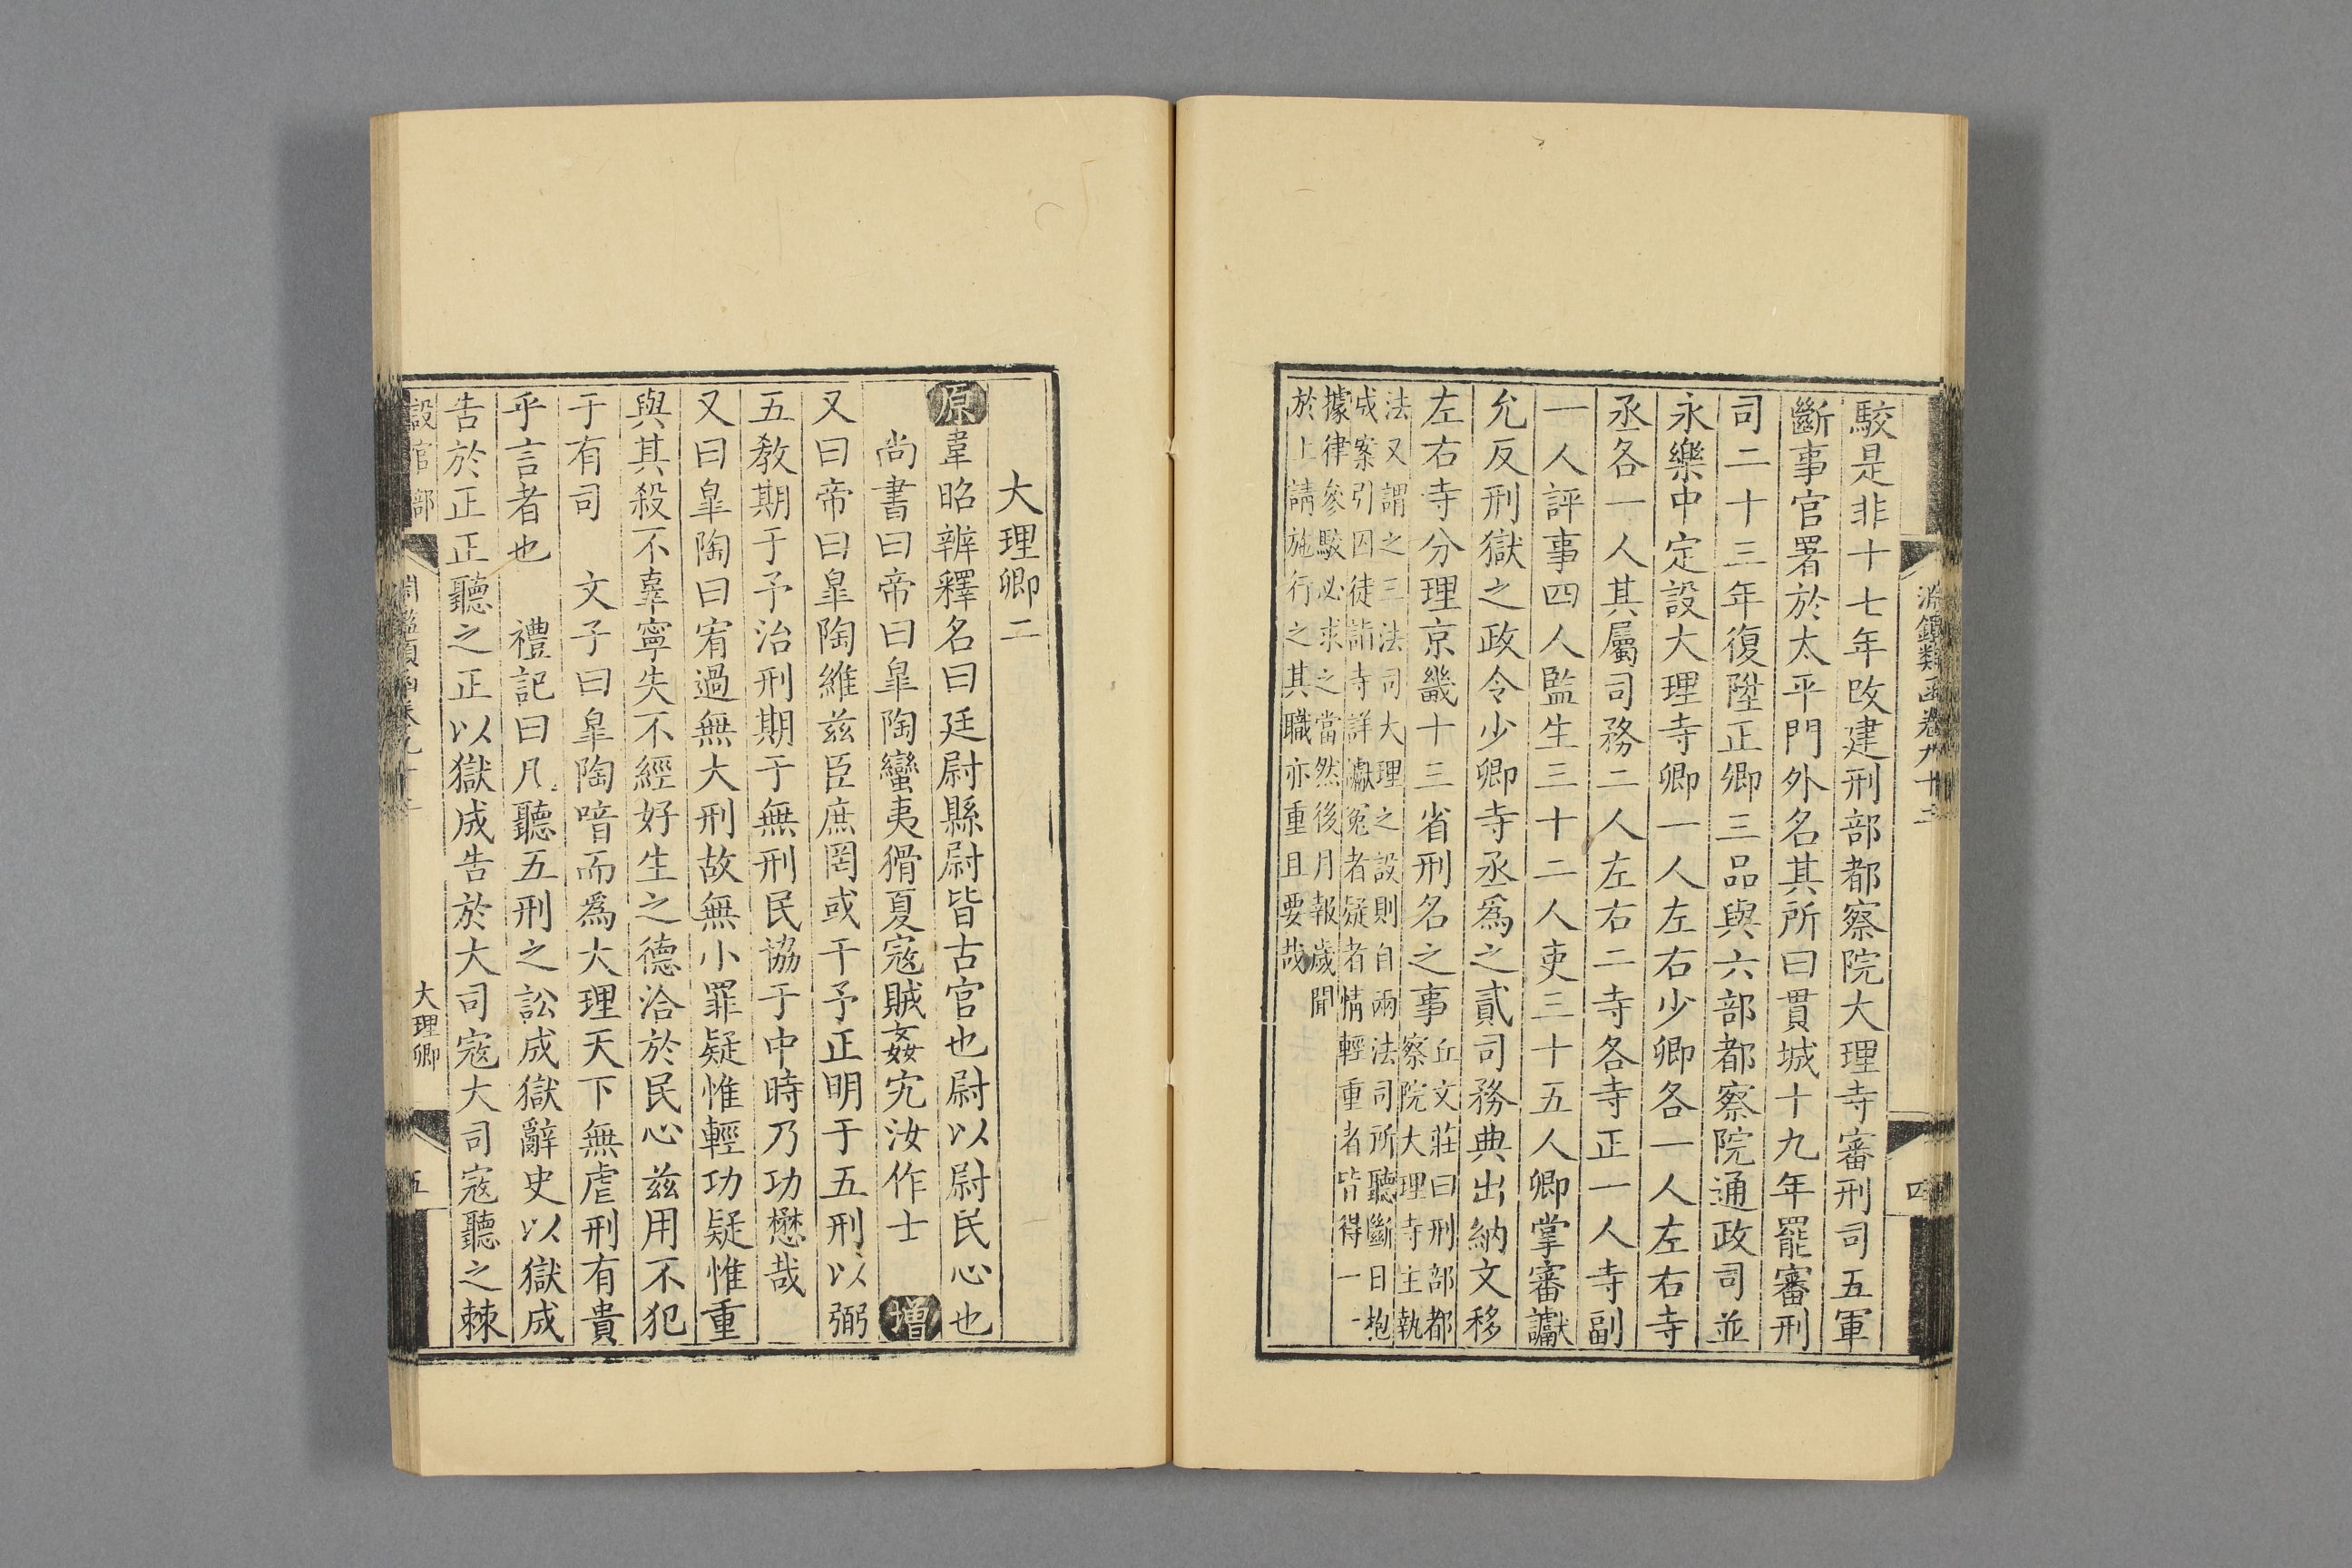 淵鑑類函卷九十三
四
駮是非十七年改建刑部都察院大理寺審刑司五軍
斷事官署於太平門外名其所曰貫城十九年罷審刑
司二十三年復陞正卿三品與六部都察院通政司並
永樂中定設大理寺卿一人左右少卿各一人左右寺
丞各一人其屬司務二人左右二寺各寺正一人寺副
一人評事四人監生三十二人吏三十五人卿掌審讞
允反刑獄之政令少卿寺丞爲之貳司務典出納文移
左右寺分理京畿十三省刑名之事
丘文莊曰刑部都
察院大理寺主執
法又謂之三法司大理之設則自兩法司所聽斷日抱
成案引囚徒詣寺詳讞冤者疑者情輕重者皆得一一
據律參駮必求之當然後月報歲聞
於上請施行之其職亦重且要哉
大理卿二
原韋昭辨釋名曰廷尉縣尉皆古官也尉以尉民心也
尚書曰帝曰皐陶蠻夷猾夏寇賊姦宄汝作士 增
又曰帝曰皐陶維兹臣庶罔或干予正明于五刑以弼
五教期于予治刑期于無刑民協于中時乃功懋哉
又曰皐陶曰宥過無大刑故無小罪疑惟輕功疑惟重
與其殺不辜寧失不經好生之德洽於民心兹用不犯
于有司 文子曰皐陶喑而爲大理天下無虐刑有貴
乎言者也 禮記曰凡聽五刑之訟成獄辭史以獄成
告於正正聽之正以獄成告於大司寇大司寇聽之棘
設官部
大理卿
五